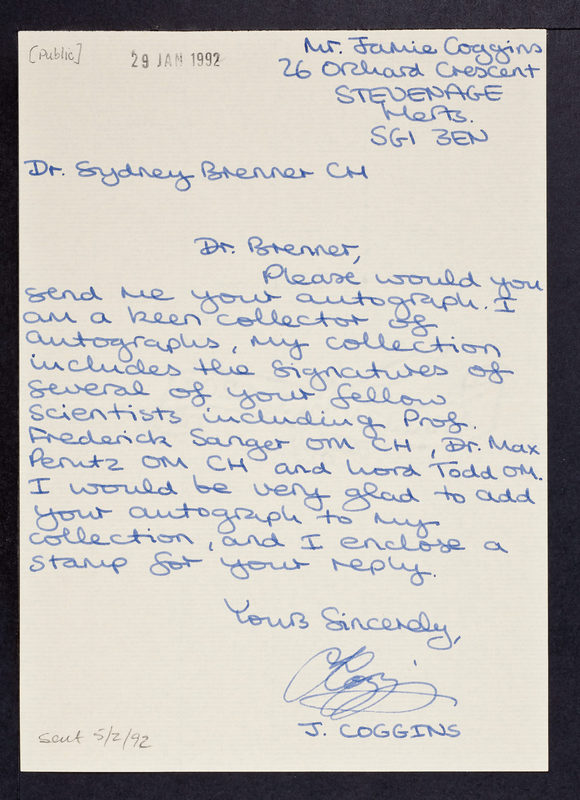 [Public]
29 JAN 1992
Mr. Jamie Coggins
26 Orchard Crescent
STEVENAGE
Herts.
SG1 3EN
Dr. Sydney Brenner CH
Dr. Brenner,
Please would you
send me your autograph. I
am a keen collector of
autographs, my collection
includes the signatures of
several of your fellow
scientists including Prof.
Frederick Sanger OM CH, Dr. Max
Perutz OM CH and Lord Todd OM.
I would be very glad to add
your autograph to my
collection, and I enclose a
stamp for your reply.
Yours Sincerely,
J. COGGINS
sent 5/2/92